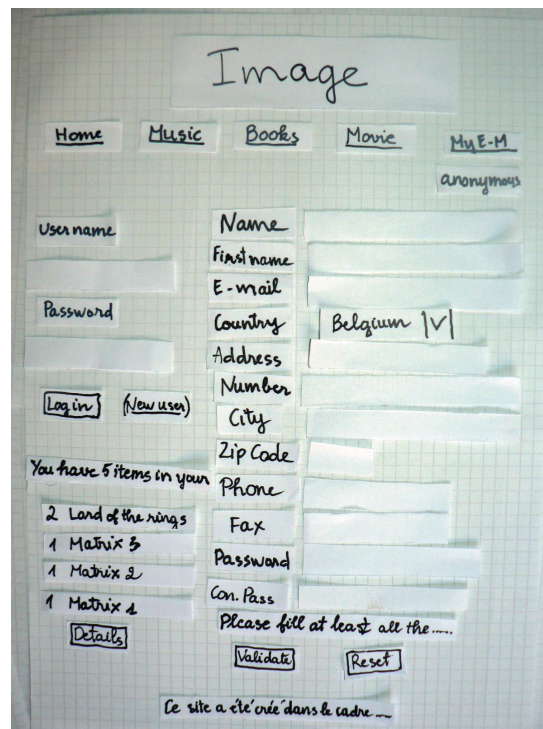 Image
Home Music Books Movie My E-M
anonymous
User name
Password
Login (New user)
You have 5 items in your
2 Lord of the rings
1 Matrix 3
1 Matrix 2
1 Matrix 1
Details
Name
First name
E-mail
Country Belgium |V|
Address
Number
City
Zip Code
Phone
Fax
Password
Con. Pass
Please fill at least all the .....
Validate Reset
Ce site a été créé dans le cadre ....